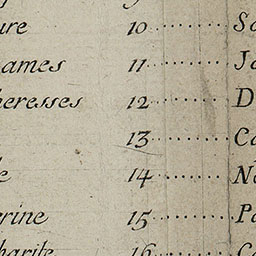 ure 10 ........ Sa
ames 11 ........ Ja
heresses 12 ........ D
13 ........ Ca
e 14 ........ No
rine 15 ........ Pa
harite 16 ........ Ca